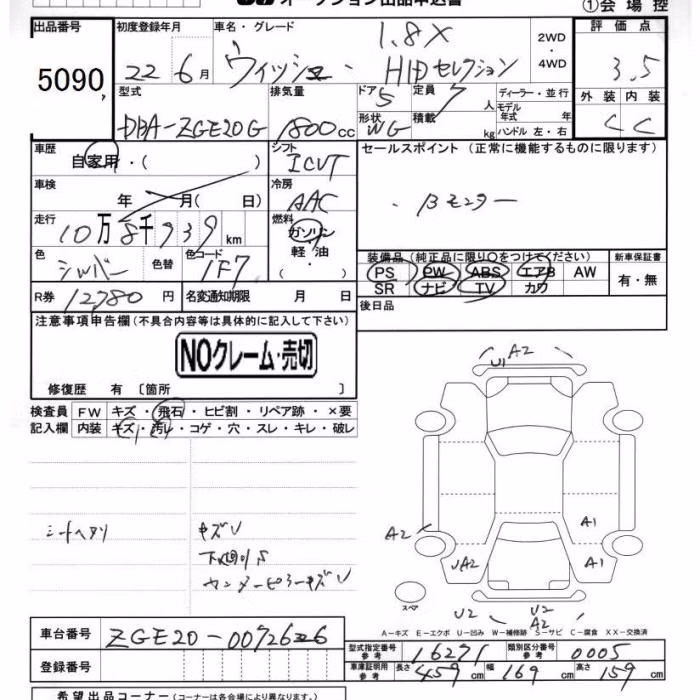 オークション出品申込書
①会場控
出品番号 初度登録年月 車名・グレード 1.8X 2WD・4WD 評価点
5090 22 6月 ウィッシュ・HIDセレクション 3.5
型式 排気量 ドア 5 定員 7人 ディーラー・並行 外装 内装
DBA-ZGE20G 1800cc 形状 WG 積載 kg モデル年式 年 ハンドル 左・右 C C
車歴 自家用・( ) シフト ICVT セールスポイント (正常に機能するものに限ります)
車検 年 月( 日) 冷房 AAC ・Bモニター
走行 10万8千939km 燃料 ガソリン・軽油・( )
色 シルバー 色替 色コード 1F7
装備品(純正品に限り○をつけてください) 新車保証書
PS PW ABS エアB AW 有・無
SR ナビ TV カワ
R券 12,780円 名変通知期限 月 日 後日品
注意事項申告欄(不具合内容等は具体的に記入して下さい)
NOクレーム・売切
修復歴 有〔箇所 〕
検査員 FW キズ・飛石・ヒビ割・リペア跡・×要
記入欄 内装 キズ・汚れ・コゲ・穴・スレ・キレ・破レ
シートヘタリ キズU
A2
U1
A2
A1
UA2
A1
スペア
U2
U2
A2
A-キズ E-エクボ U-凹み W-補修跡 S-サビ C-腐食 XX-交換済
車台番号 ZGE20-0072626
登録番号
型式指定番号 参考 16271 類別区分番号 参考 0005
車庫証明用 参考 長さ 459cm 幅 169cm 高さ 159cm
希望出品コーナー(コーナーは各会場により異なります)